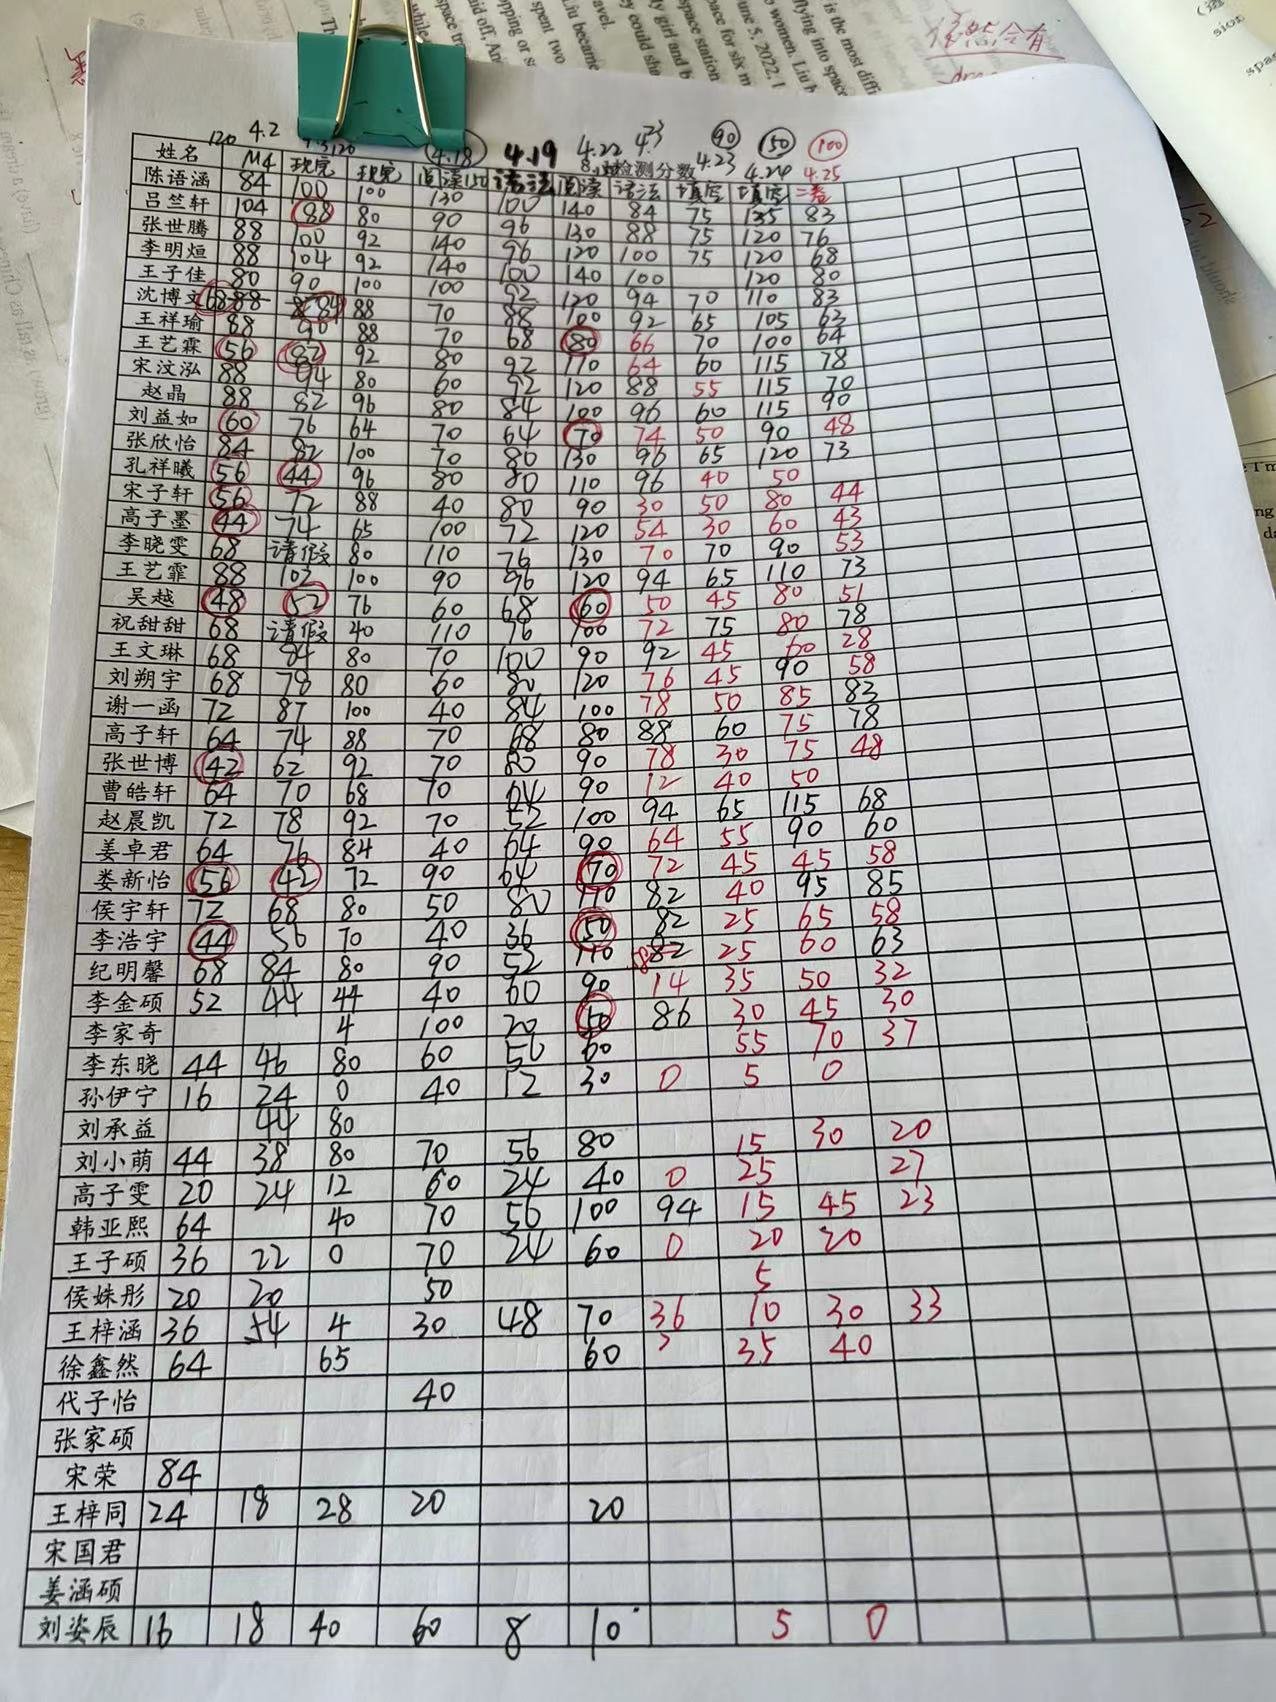 120 4.2 4.18 4.19 4.22 4.23 4.23 90 150 100
姓名 M4 检测分数 4.24 4.25
陈语涵 84 100 100 130 100 140 84 75 135 83
吕竺轩 104 88 80 90 96 130 88 75 120 76
张世腾 88 100 92 140 96 120 100 75 120 68
李明烜 88 104 92 140 100 140 100 120 80
王子佳 80 90 100 100 92 120 94 70 110 83
沈博文 68 88 84 88 70 88 100 92 65 105 62
王祥瑜 88 90 88 70 68 80 66 70 100 64
王艺霖 56 82 92 80 92 110 64 60 115 78
宋汶泓 88 94 80 60 92 120 88 55 115 70
赵晶 88 82 96 80 84 100 96 60 115 90
刘益如 60 76 64 70 64 70 74 50 90 48
张欣怡 84 82 100 70 80 130 96 65 120 73
孔祥曦 56 44 96 80 80 110 96 40 50
宋子轩 56 72 88 40 80 90 30 50 80 44
高子墨 44 74 65 100 72 120 54 30 60 43
李晓雯 68 请假 80 110 76 130 70 70 90 53
王艺霏 88 103 100 90 96 120 94 65 110 73
吴越 48 52 76 60 68 60 50 45 80 51
祝甜甜 68 请假 40 110 76 100 72 75 80 78
王文琳 68 84 80 70 100 90 92 45 60 28
刘朔宇 68 78 80 60 80 120 76 45 90 58
谢一函 72 87 100 40 84 100 78 50 85 83
高子轩 64 74 88 70 68 80 88 60 75 78
张世博 42 62 92 70 80 90 78 30 75 48
曹皓轩 64 70 68 70 64 90 12 40 50
赵晨凯 72 78 92 70 52 100 94 65 115 68
姜卓君 64 76 84 40 64 90 64 55 90 60
娄新怡 56 42 72 90 64 70 72 45 45 58
侯宇轩 72 68 80 50 80 110 82 40 95 85
李浩宇 44 56 70 40 36 50 82 25 65 58
纪明馨 68 84 80 90 52 110 82 25 60 63
李金硕 52 44 44 40 60 90 14 35 50 32
李家奇 4 100 20 50 86 30 45 30
李东晓 44 46 80 60 50 60 55 70 37
孙伊宁 16 24 0 40 12 30 0 5 0
刘承益 44 80
刘小萌 44 38 80 70 56 80 15 30 20
高子雯 20 24 12 60 24 40 0 25 27
韩亚熙 64 40 70 56 100 94 15 45 23
王子硕 36 22 0 70 24 60 0 20 20
侯姝彤 20 20 50 5
王梓涵 36 54 4 30 48 70 36 10 30 33
徐鑫然 64 65 60 35 40
代子怡 40
张家硕
宋荣 84
王梓同 24 18 28 20 20
宋国君
姜涵硕
刘姿辰 16 18 40 60 8 10 5 0